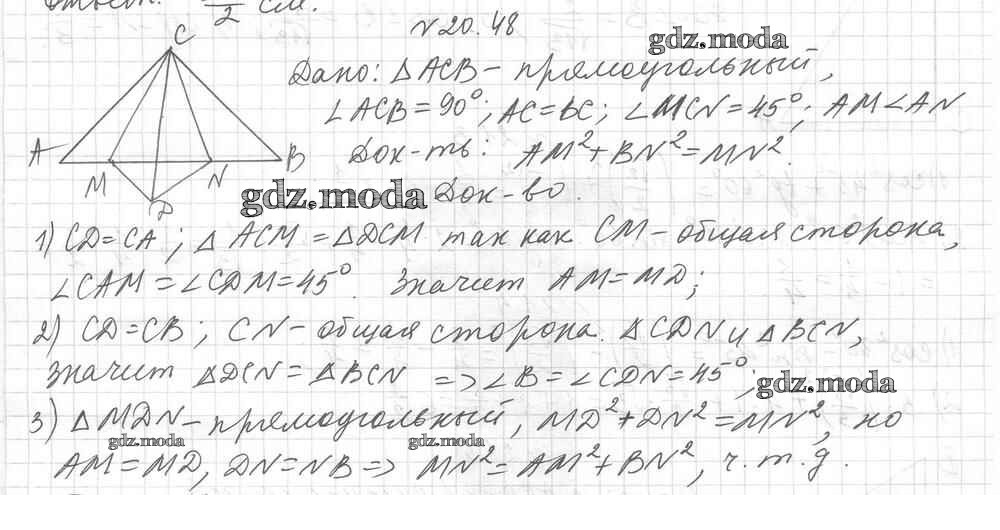 2 см.
N 20.48
gdz.moda
C
Дано: △ACB – прямоугольный,
∠ACB = 90°; AC = BC; ∠MCN = 45°; AM < AN
A
B
Док-ть: AM² + BN² = MN².
M
N
D
gdz.moda
Док-во.
1) CD = CA; △ACM = △DCM так как CM – общая сторона,
∠CAM = ∠CDM = 45°. Значит AM = MD;
2) CD = CB; CN – общая сторона. △CDN и △BCN,
значит △DCN = △BCN => ∠B = ∠CDN = 45°;
gdz.moda
3) △MDN – прямоугольный, MD² + DN² = MN², но
gdz.moda
gdz.moda
AM = MD, DN = NB => MN² = AM² + BN², ч.т.д.